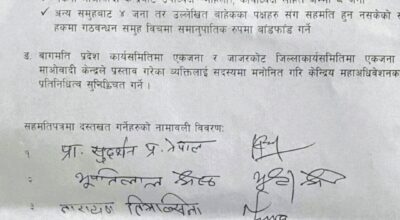 ✓ अन्य समुहबाट ४ जना तर उल्लेखित बाहेकका पक्षहरु संग सहमति हुन नसकेको
हकमा गठवन्धन समुह विचमा समानुपातिक रुपमा बाँडफाँड गर्ने
ड. बागमति प्रदेश कार्यसमितिमा एकजना र जाजरकोट जिल्लाकार्यसमितिमा एकजना
माओवादी केन्द्रले प्रस्ताव गरेका व्यक्तिलाई सदस्यमा मनोनित गरि केन्द्रिय महाअधिवेशनका
प्रतिनिधित्व सुनिश्चित गर्ने ।
सहमतिपत्रमा दस्तखत गर्नेहरुको नामावली विवरणः
१ प्रा. सुदर्शन प्र. नेपाल
२ भूपतिलाल श्रेष्ठ
३ नारायण